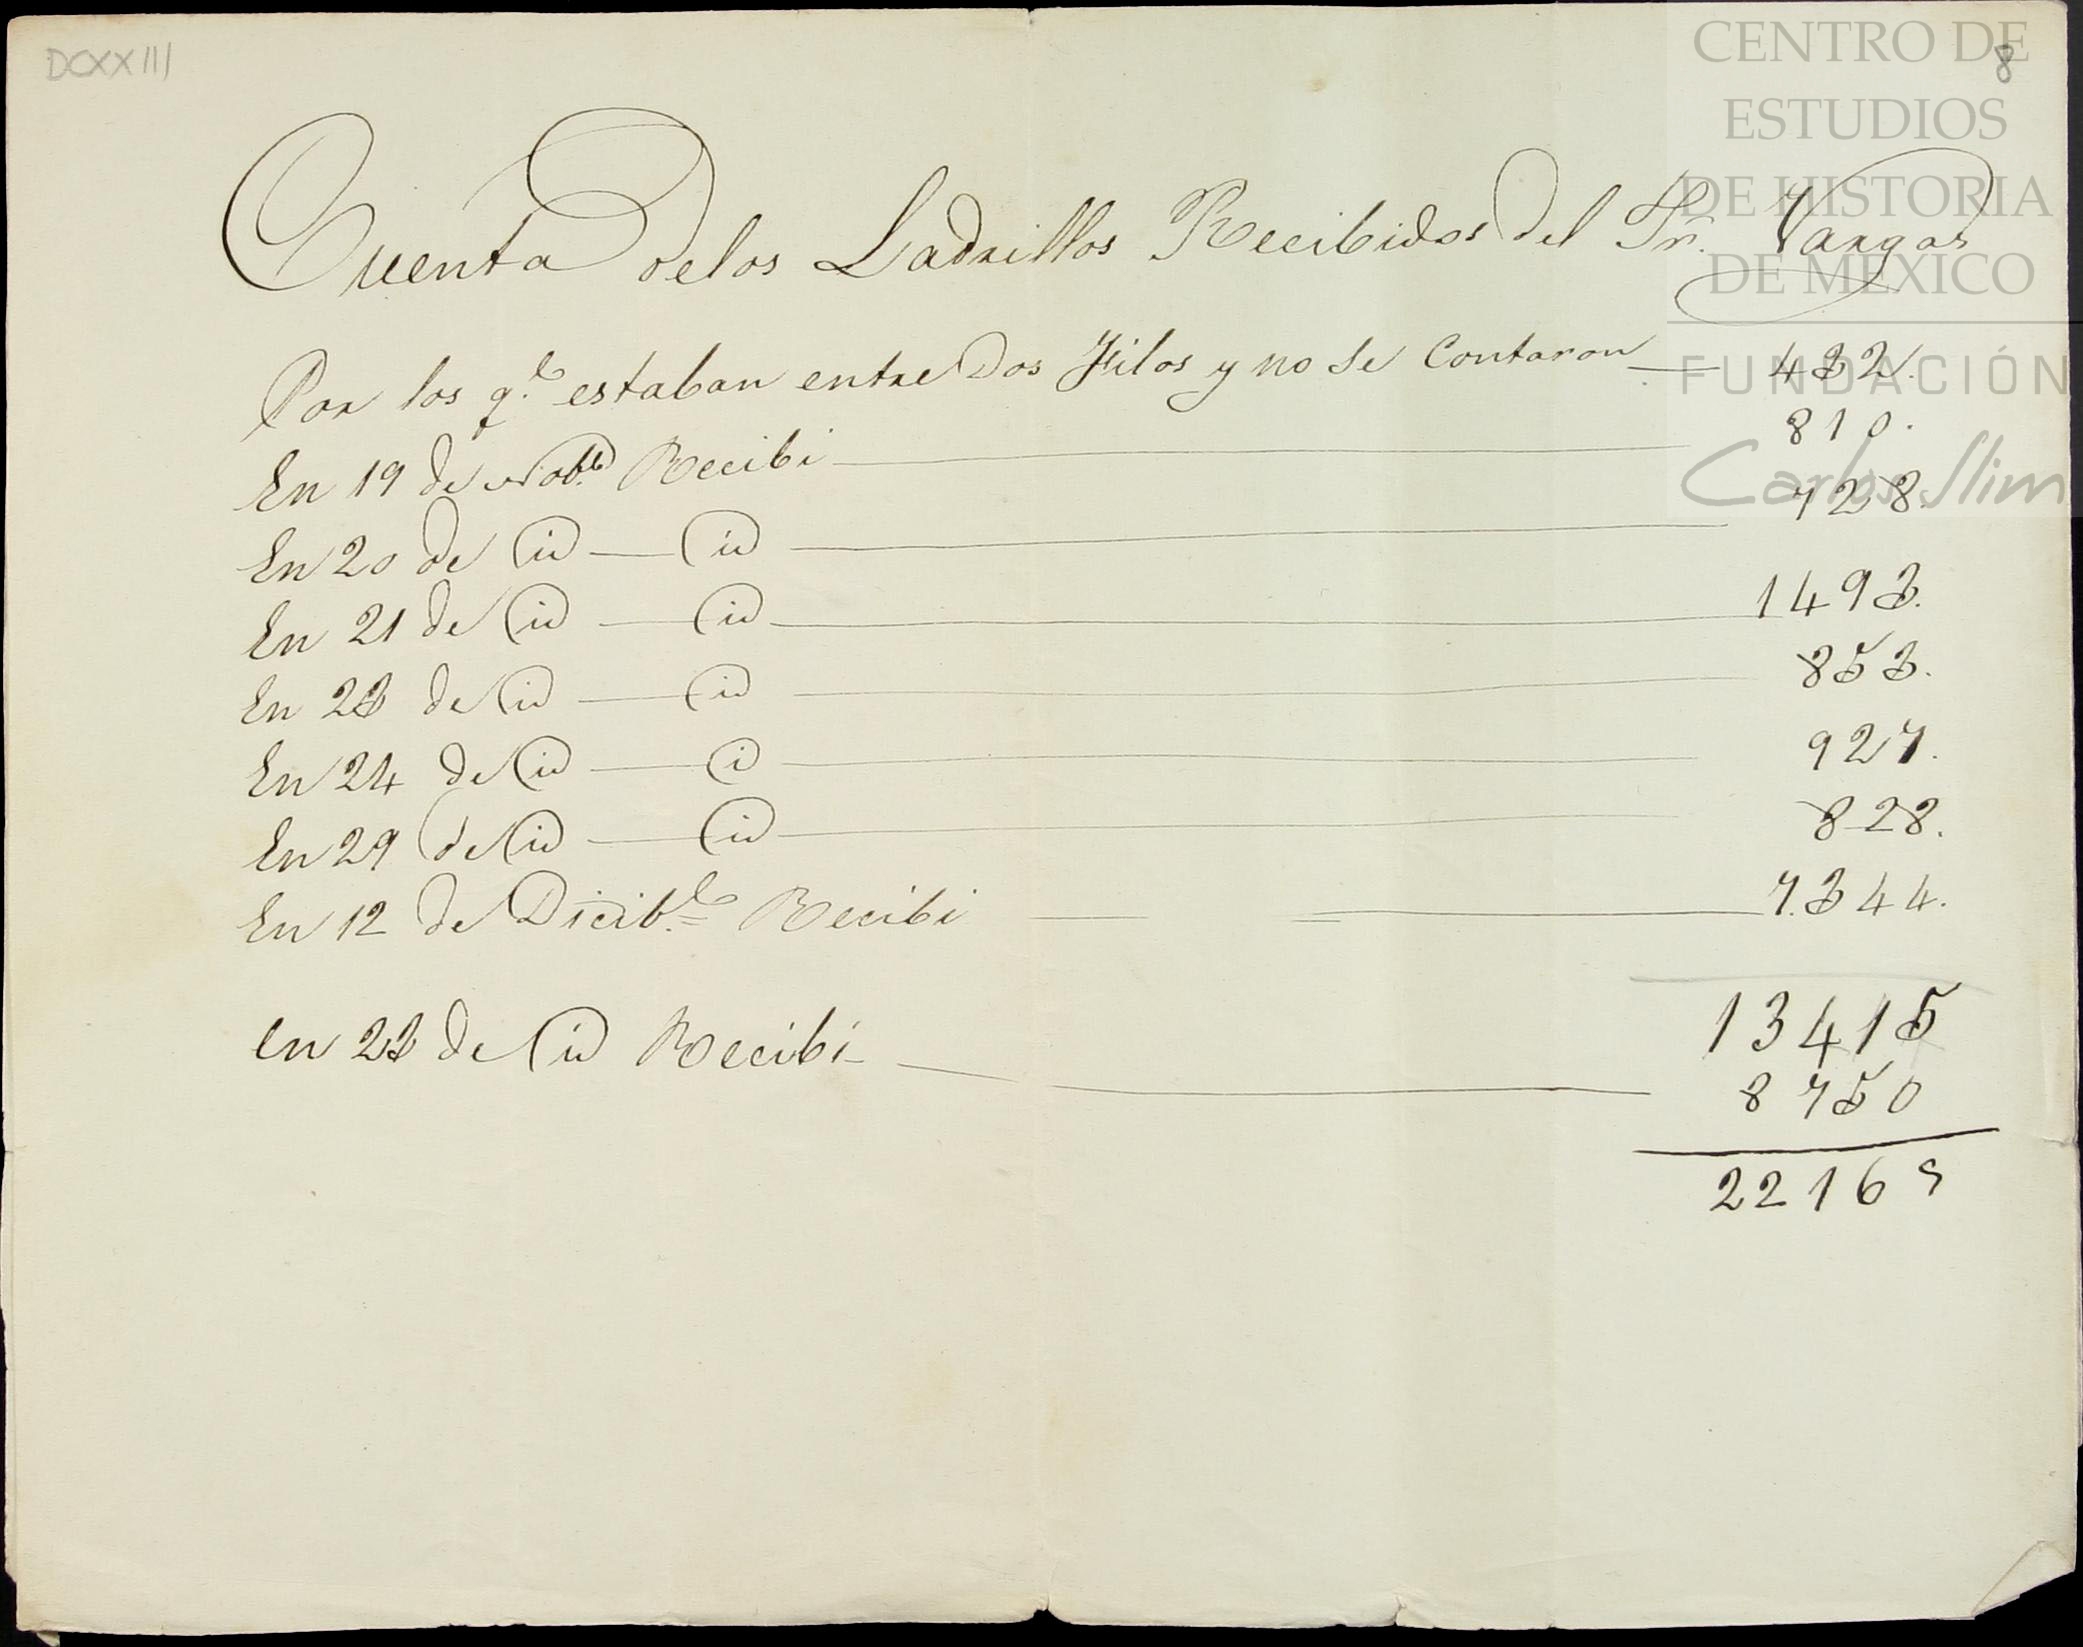 DCXXIII
8
CENTRO DE
ESTUDIOS
DE HISTORIA
DE MÉXICO
FUNDACIÓN
Carlos Slim
Cuenta de los Ladrillos Recibidos del Sr. Vargas
Por los q.e estaban entre Dos Hilos y no se Contaron — 432.
En 19 de Nob.e Recibi — 810.
En 20 de id — id — 728.
En 21 de id — id — 1493.
En 23 de id — id — 853.
En 24 de id — i — 927.
En 29 de id — id — 828.
En 12 de Dicib.e Recibi — 7.344.
13415
en 23 de id Recibi — 8750
22165